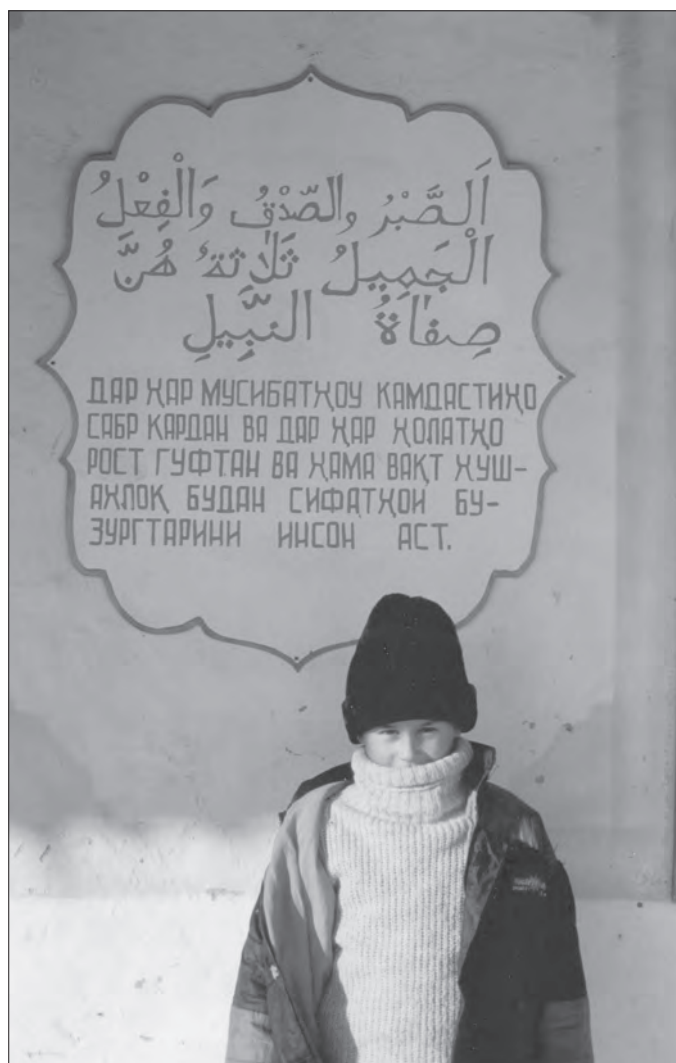 اَلصَّبْرُ والصِّدْقُ وَالْفِعْلُ
الْجَمِيلُ ثَلَاثَةٌ هُنَّ
صِفَاةُ النَّبِيلِ
ДАР ҲАР МУСИБАТҲОУ КАМДАСТИҲО
САБР КАРДАН ВА ДАР ҲАР ҲОЛАТҲО
РОСТ ГУФТАН ВА ҲАМА ВАҚТ ҲУШ-
АХЛОҚ БУДАН СИФАТҲОИ БУ-
ЗУРГТАРИНИ ИНСОН АСТ.